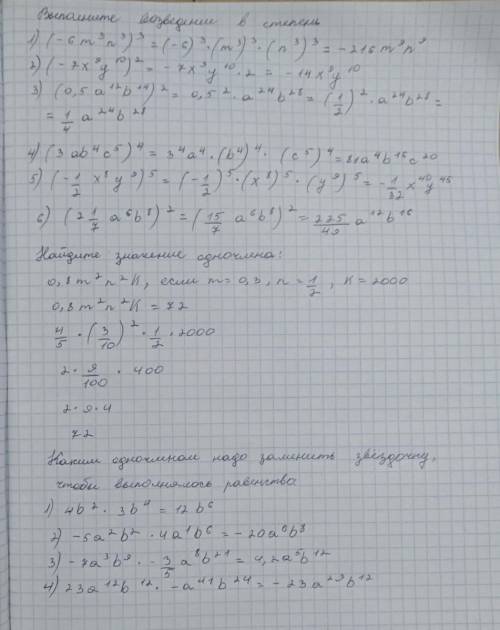 Выполните возведение в степень
1) (-6 m³ n³)³ = (-6)³ · (m³)³ · (n³)³ = -216 m⁹ n⁹
2) (-7x⁹y¹⁰)² = -7x⁹y¹⁰ · 2 = -14x⁹y¹⁰
3) (0,5 a¹²b¹⁴)² = 0,5² · a²⁴b²⁸ = (1/2)² · a²⁴b²⁸ =
= 1/4 a²⁴b²⁸
4) (3ab⁴c⁵)⁴ = 3⁴a⁴ · (b⁴)⁴ · (c⁵)⁴ = 81a⁴b¹⁶c²⁰
5) (-1/2 x⁸y⁹)⁵ = (-1/2)⁵ · (x⁸)⁵ · (y⁹)⁵ = -1/32 x⁴⁰y⁴⁵
6) (2 1/7 a⁶b⁸)² = (15/7 a⁶b⁸)² = 225/49 a¹²b¹⁶
Найдите значение одночлена:
0,8m²n²K, если m = 0,3, n = 1/2, K = 2000
0,8m²n²K = 72
4/5 · (3/10)² · 1/2 · 2000
2 · 9/100 · 400
2 · 9 · 4
72
Каким одночленом надо заменить звёздочку,
чтобы выполнялось равенство
1) 4b² · 3b⁴ = 12b⁶
2) -5a²b² · 4a¹b⁶ = -20a⁶b⁸
3) -7a³b⁹ · -3/5 a⁸b²¹ = 4,2a⁵b¹²
4) 23a¹²b¹² · -a⁴¹b²⁴ = -23a²⁹b¹²